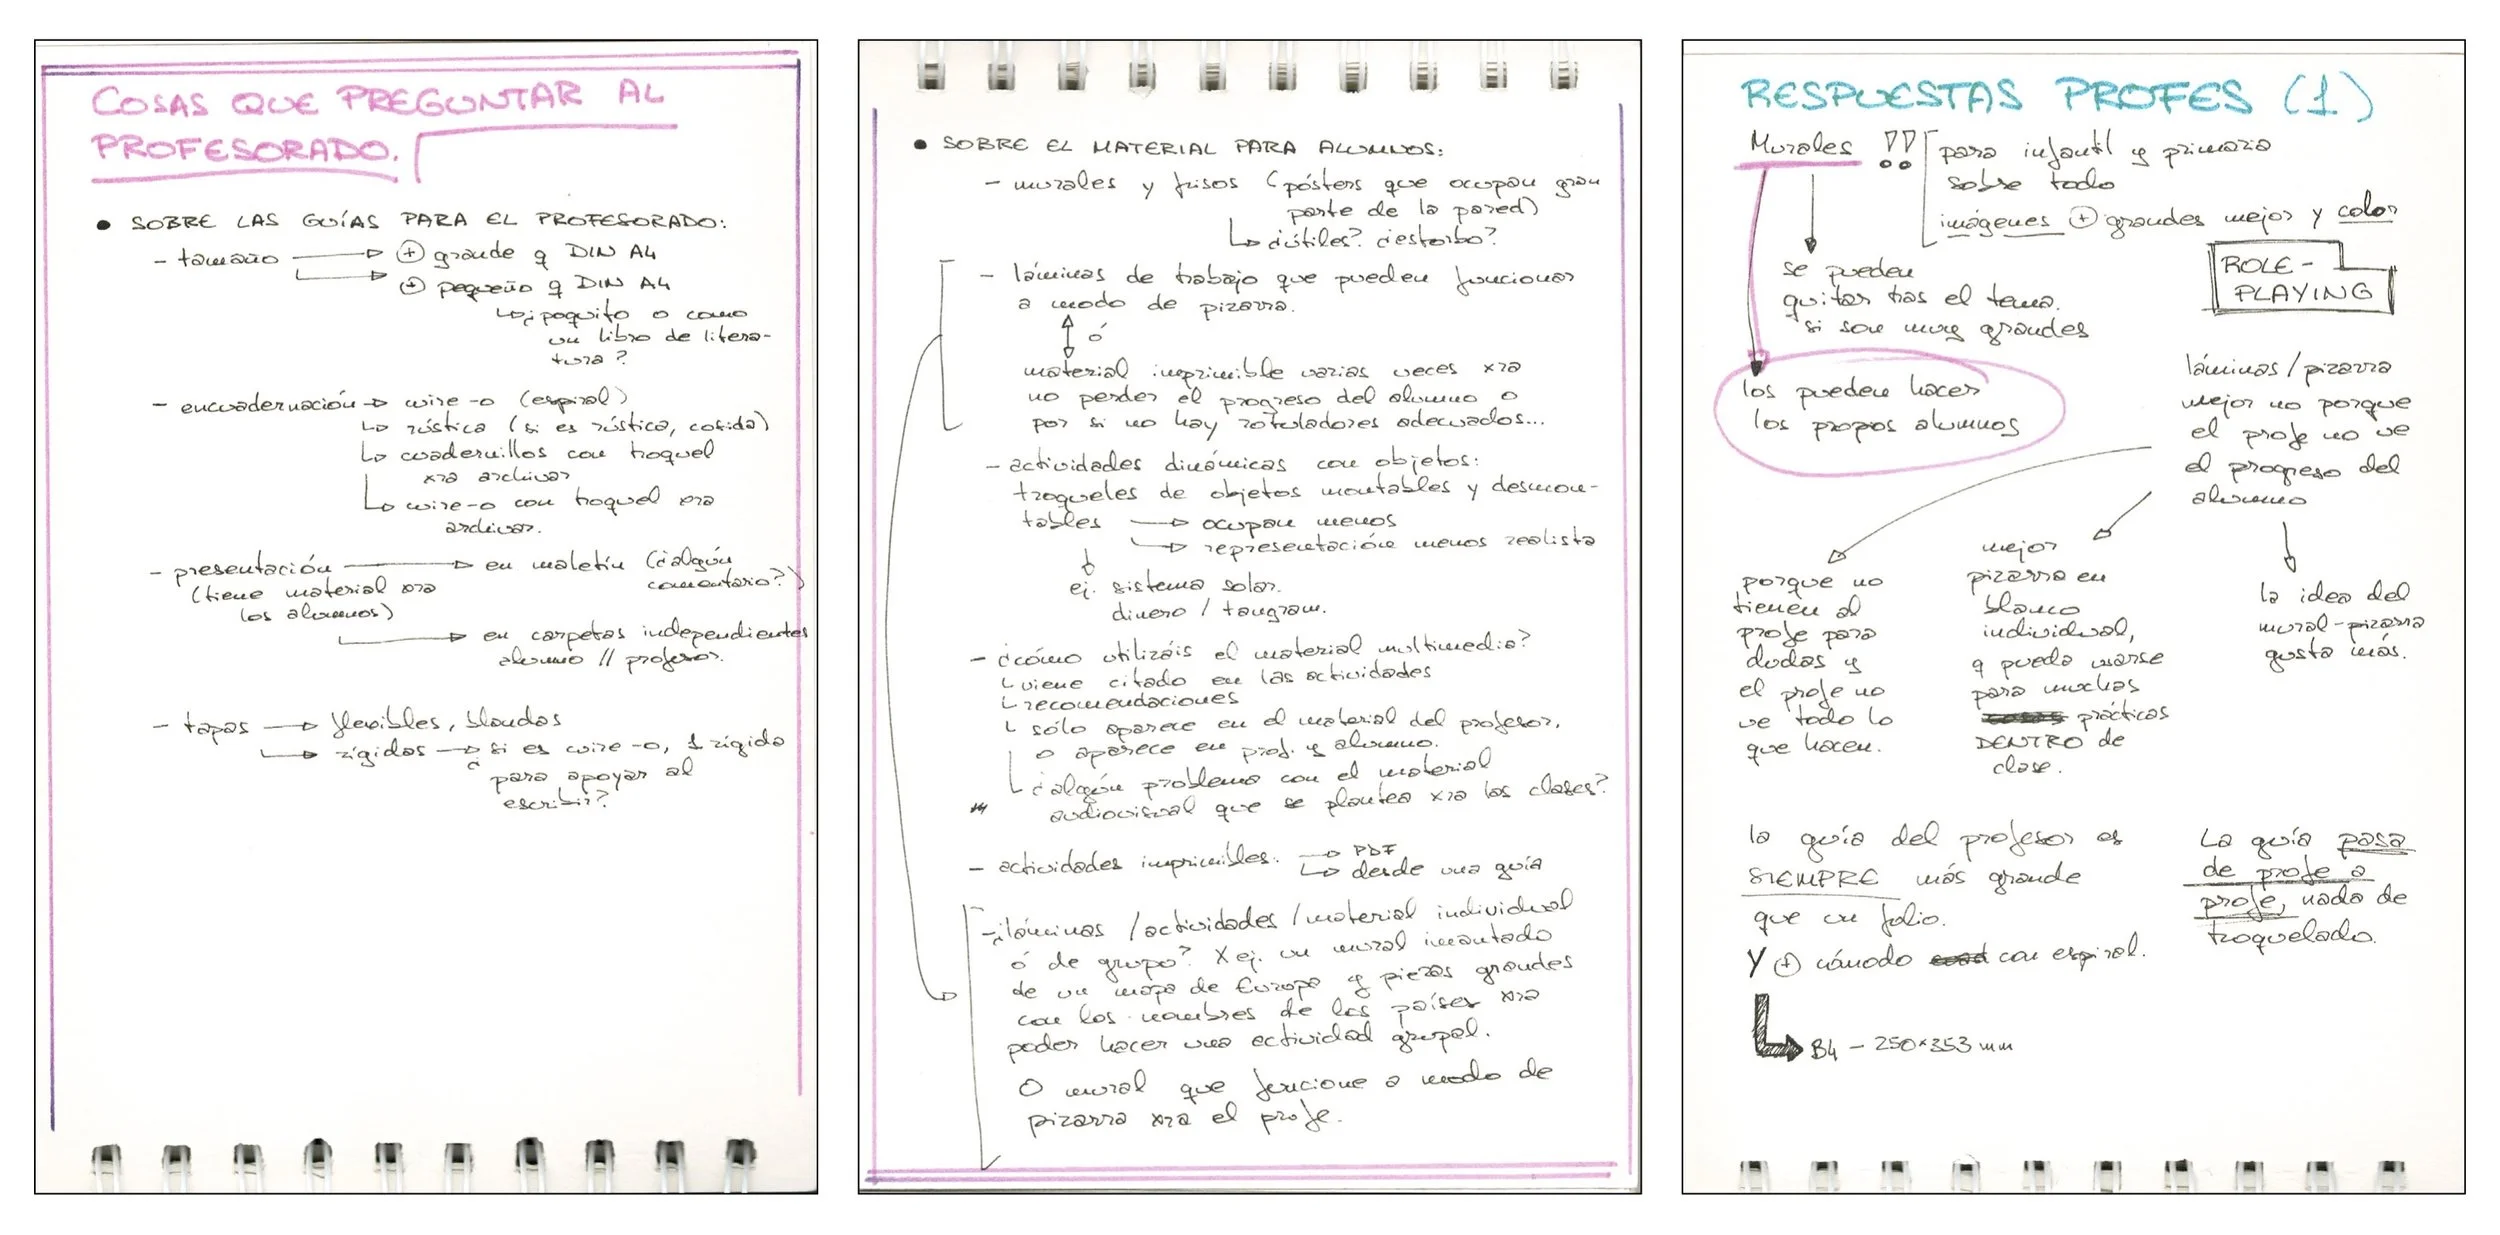 COSAS QUE PREGUNTAR AL
PROFESORADO.
• SOBRE LAS GUÍAS PARA EL PROFESORADO:
- tamaño → + grande q DIN A4
→ + pequeño q DIN A4
↳ ¿poquito o como
un libro de litera-
tura?
- encuadernación → wire-o (espiral)
↳ rústica (si es rústica, cosida)
↳ cuadernillos con troquel
xra archivar
↳ wire-o con troquel xra
archivar.
- presentación → en maletín (¿algún
comentario?)
(tiene material xra
los alumnos)
→ en carpetas independientes
alumno // profesor.
- tapas → flexibles, blandas
↳ rígidas → si es wire-o, 1 rígida
¿ para apoyar al
escribir?
• SOBRE EL MATERIAL PARA ALUMNOS:
- murales y frisos (pósters que ocupan gran
parte de la pared)
↳ ¿útiles? ¿estorbo?
- láminas de trabajo que pueden funcionar
a modo de pizarra.
ó
material imprimible varias veces xra
no perder el progreso del alumno o
por si no hay rotuladores adecuados...
- actividades dinámicas con objetos:
troqueles de objetos montables y desmon-
tables → ocupan menos
↳ representación menos realista
ej. sistema solar.
dinero / tangram.
- ¿cómo utilizáis el material multimedia?
↳ viene citado en las actividades
↳ recomendaciones
↳ sólo aparece en el material del profesor,
o aparece en prof. y alumno.
↳ ¿algún problema con el material
audiovisual que se plantea xra las clases?
- actividades imprimibles. → PDF
↳ desde una guía
- ¿láminas / actividades / material individual
ó de grupo? X ej. un mural imantado
de un mapa de Europa y piezas grandes
con los nombres de los países xra
poder hacer una actividad grupal.
O mural que funcione a modo de
pizarra xra el profe.
RESPUESTAS PROFES (1)
Murales !! para infantil y primaria
sobre todo
imágenes + grandes mejor y color
ROLE-
PLAYING
se pueden
quitar tras el tema.
si son muy grandes
los pueden hacer
los propios alumnos
láminas / pizarra
mejor no porque
el profe no ve
el progreso del
alumno
porque no
tienen al
profe para
dudas y
el profe no
ve todo lo
que hacen.
mejor
pizarra en
blanco
individual,
q pueda usarse
para muchas
prácticas
DENTRO de
clase.
la idea del
mural-pizarra
gusta más.
la guía del profesor es
SIEMPRE más grande
que un folio.
Y + cómodo con espiral.
↳ B4 - 250×353 mm
La guía pasa
de profe a
profe, nada de
troquelado.